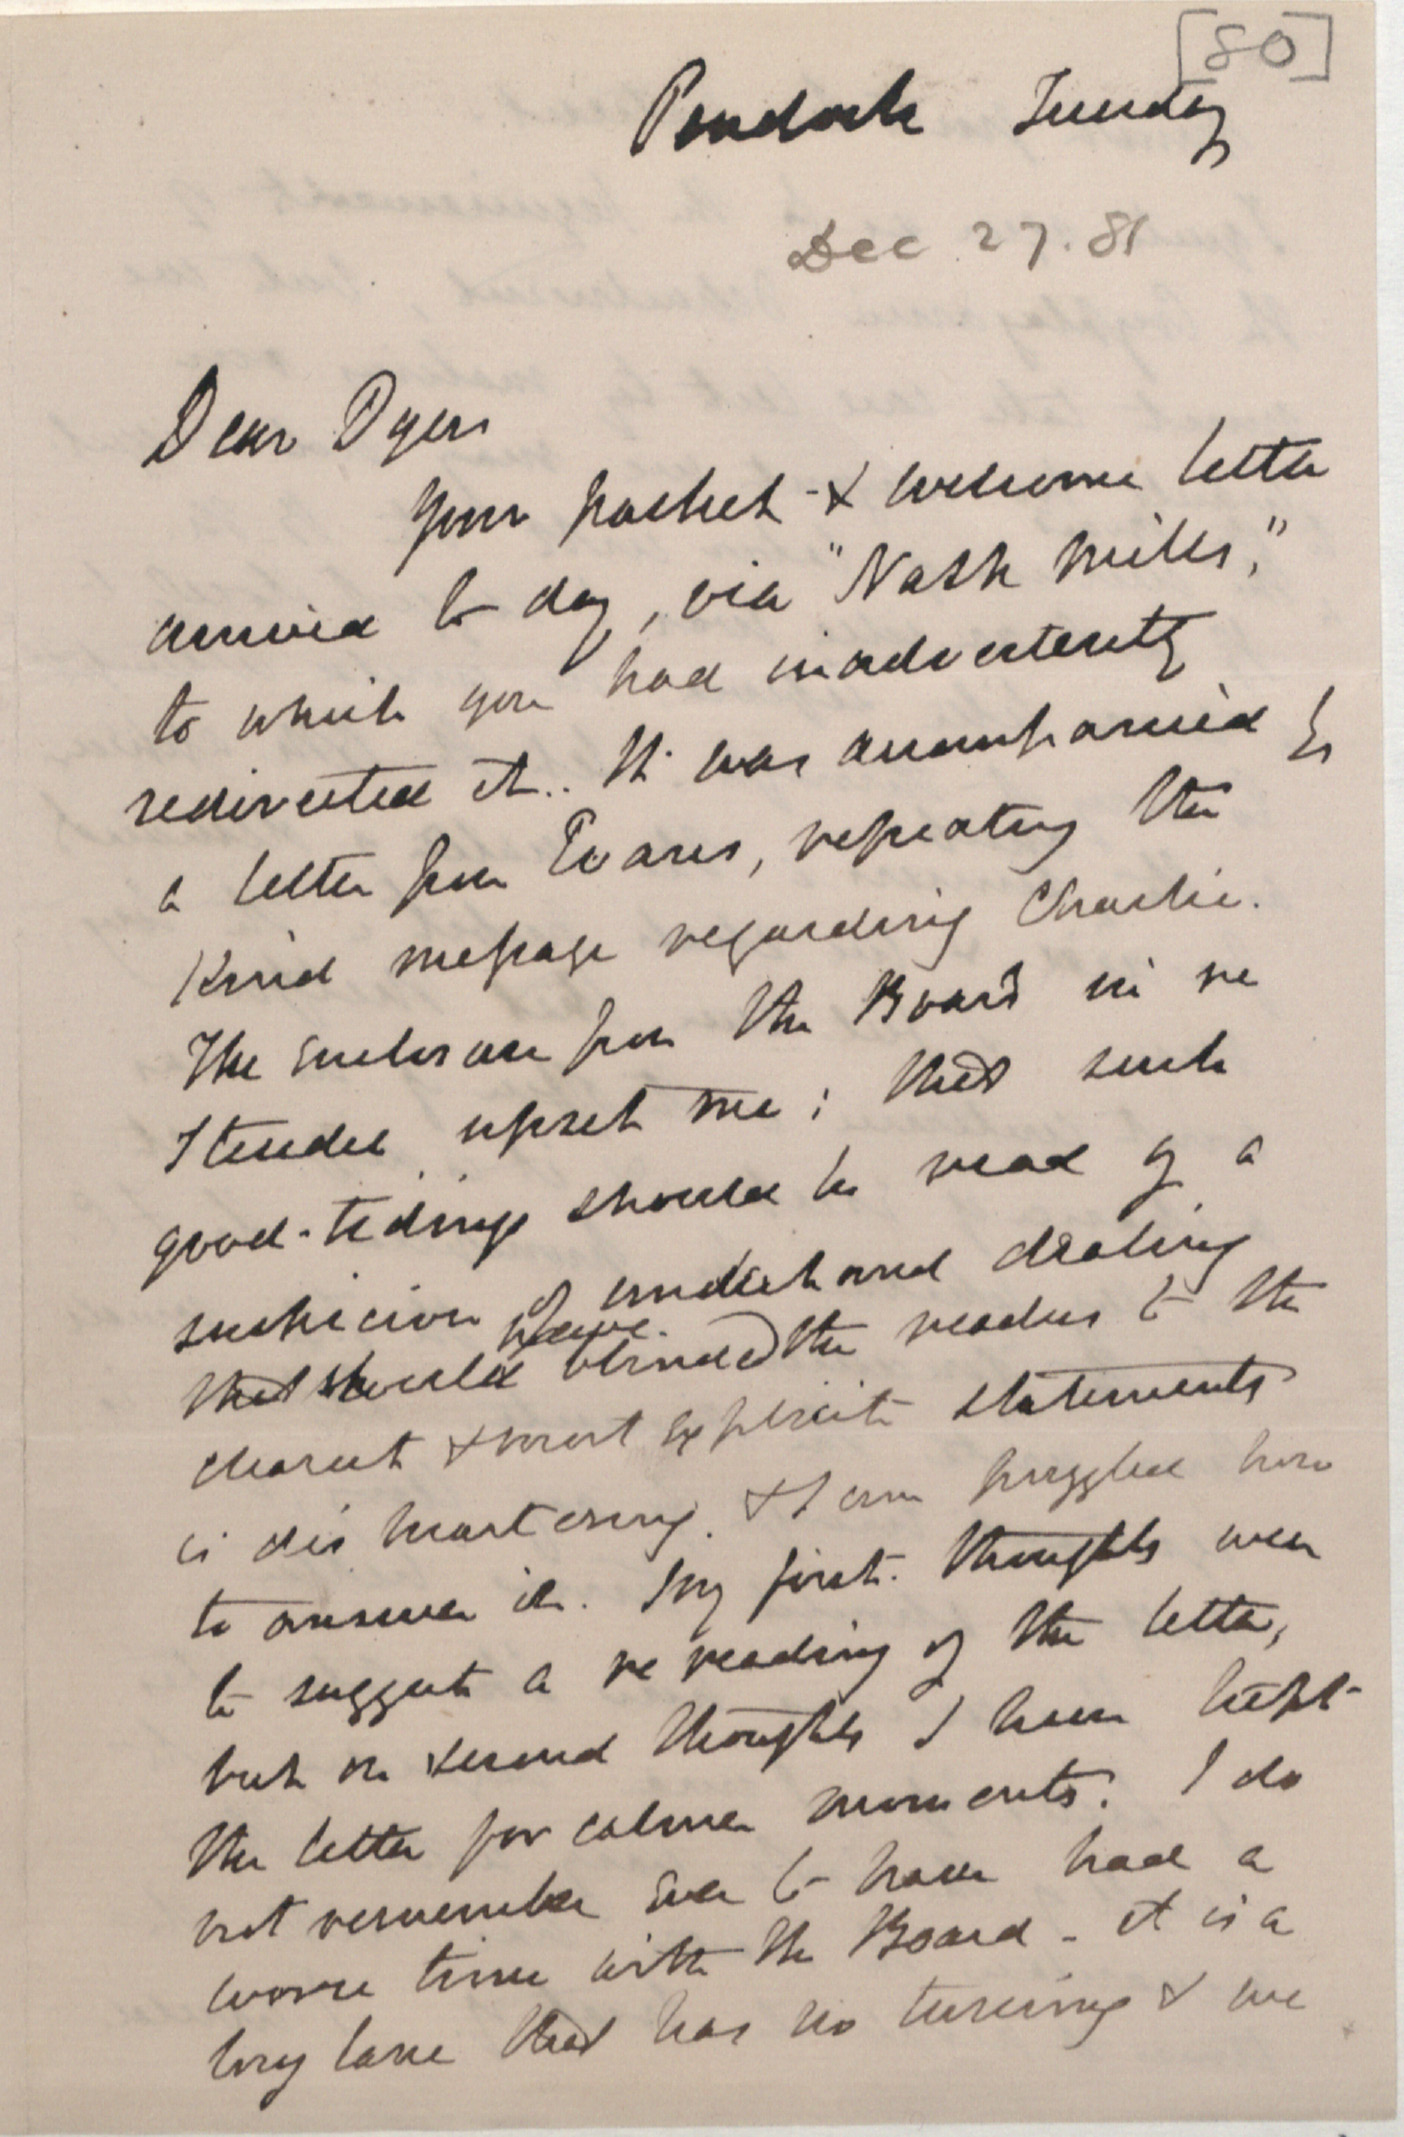 [80]
Pendock Tuesday
Dec 27. 81
Dear Dyer
Your packet & welcome letter
arrived to day, via "Nash Mills,"
to which you had inadvertently
redirected it.. It was accompanied by
a letter from Evans, repeating the
kind message regarding Charlie.
The enclosure from the Board in re
upset me; that such
good-tidings should be read of a
suspicion of underhand dealing
that should have blinded the readers to the
clearest & most explicit statements
is dis heartening. & I am puzzled how
to answer it. My first. thoughts were
to suggest a re reading of the letter,
but on second thoughts I have kept
the letter for calmer moments. I do
not remember ever to have had a
worse time with the Board - it is a
long lane that has no turning & we